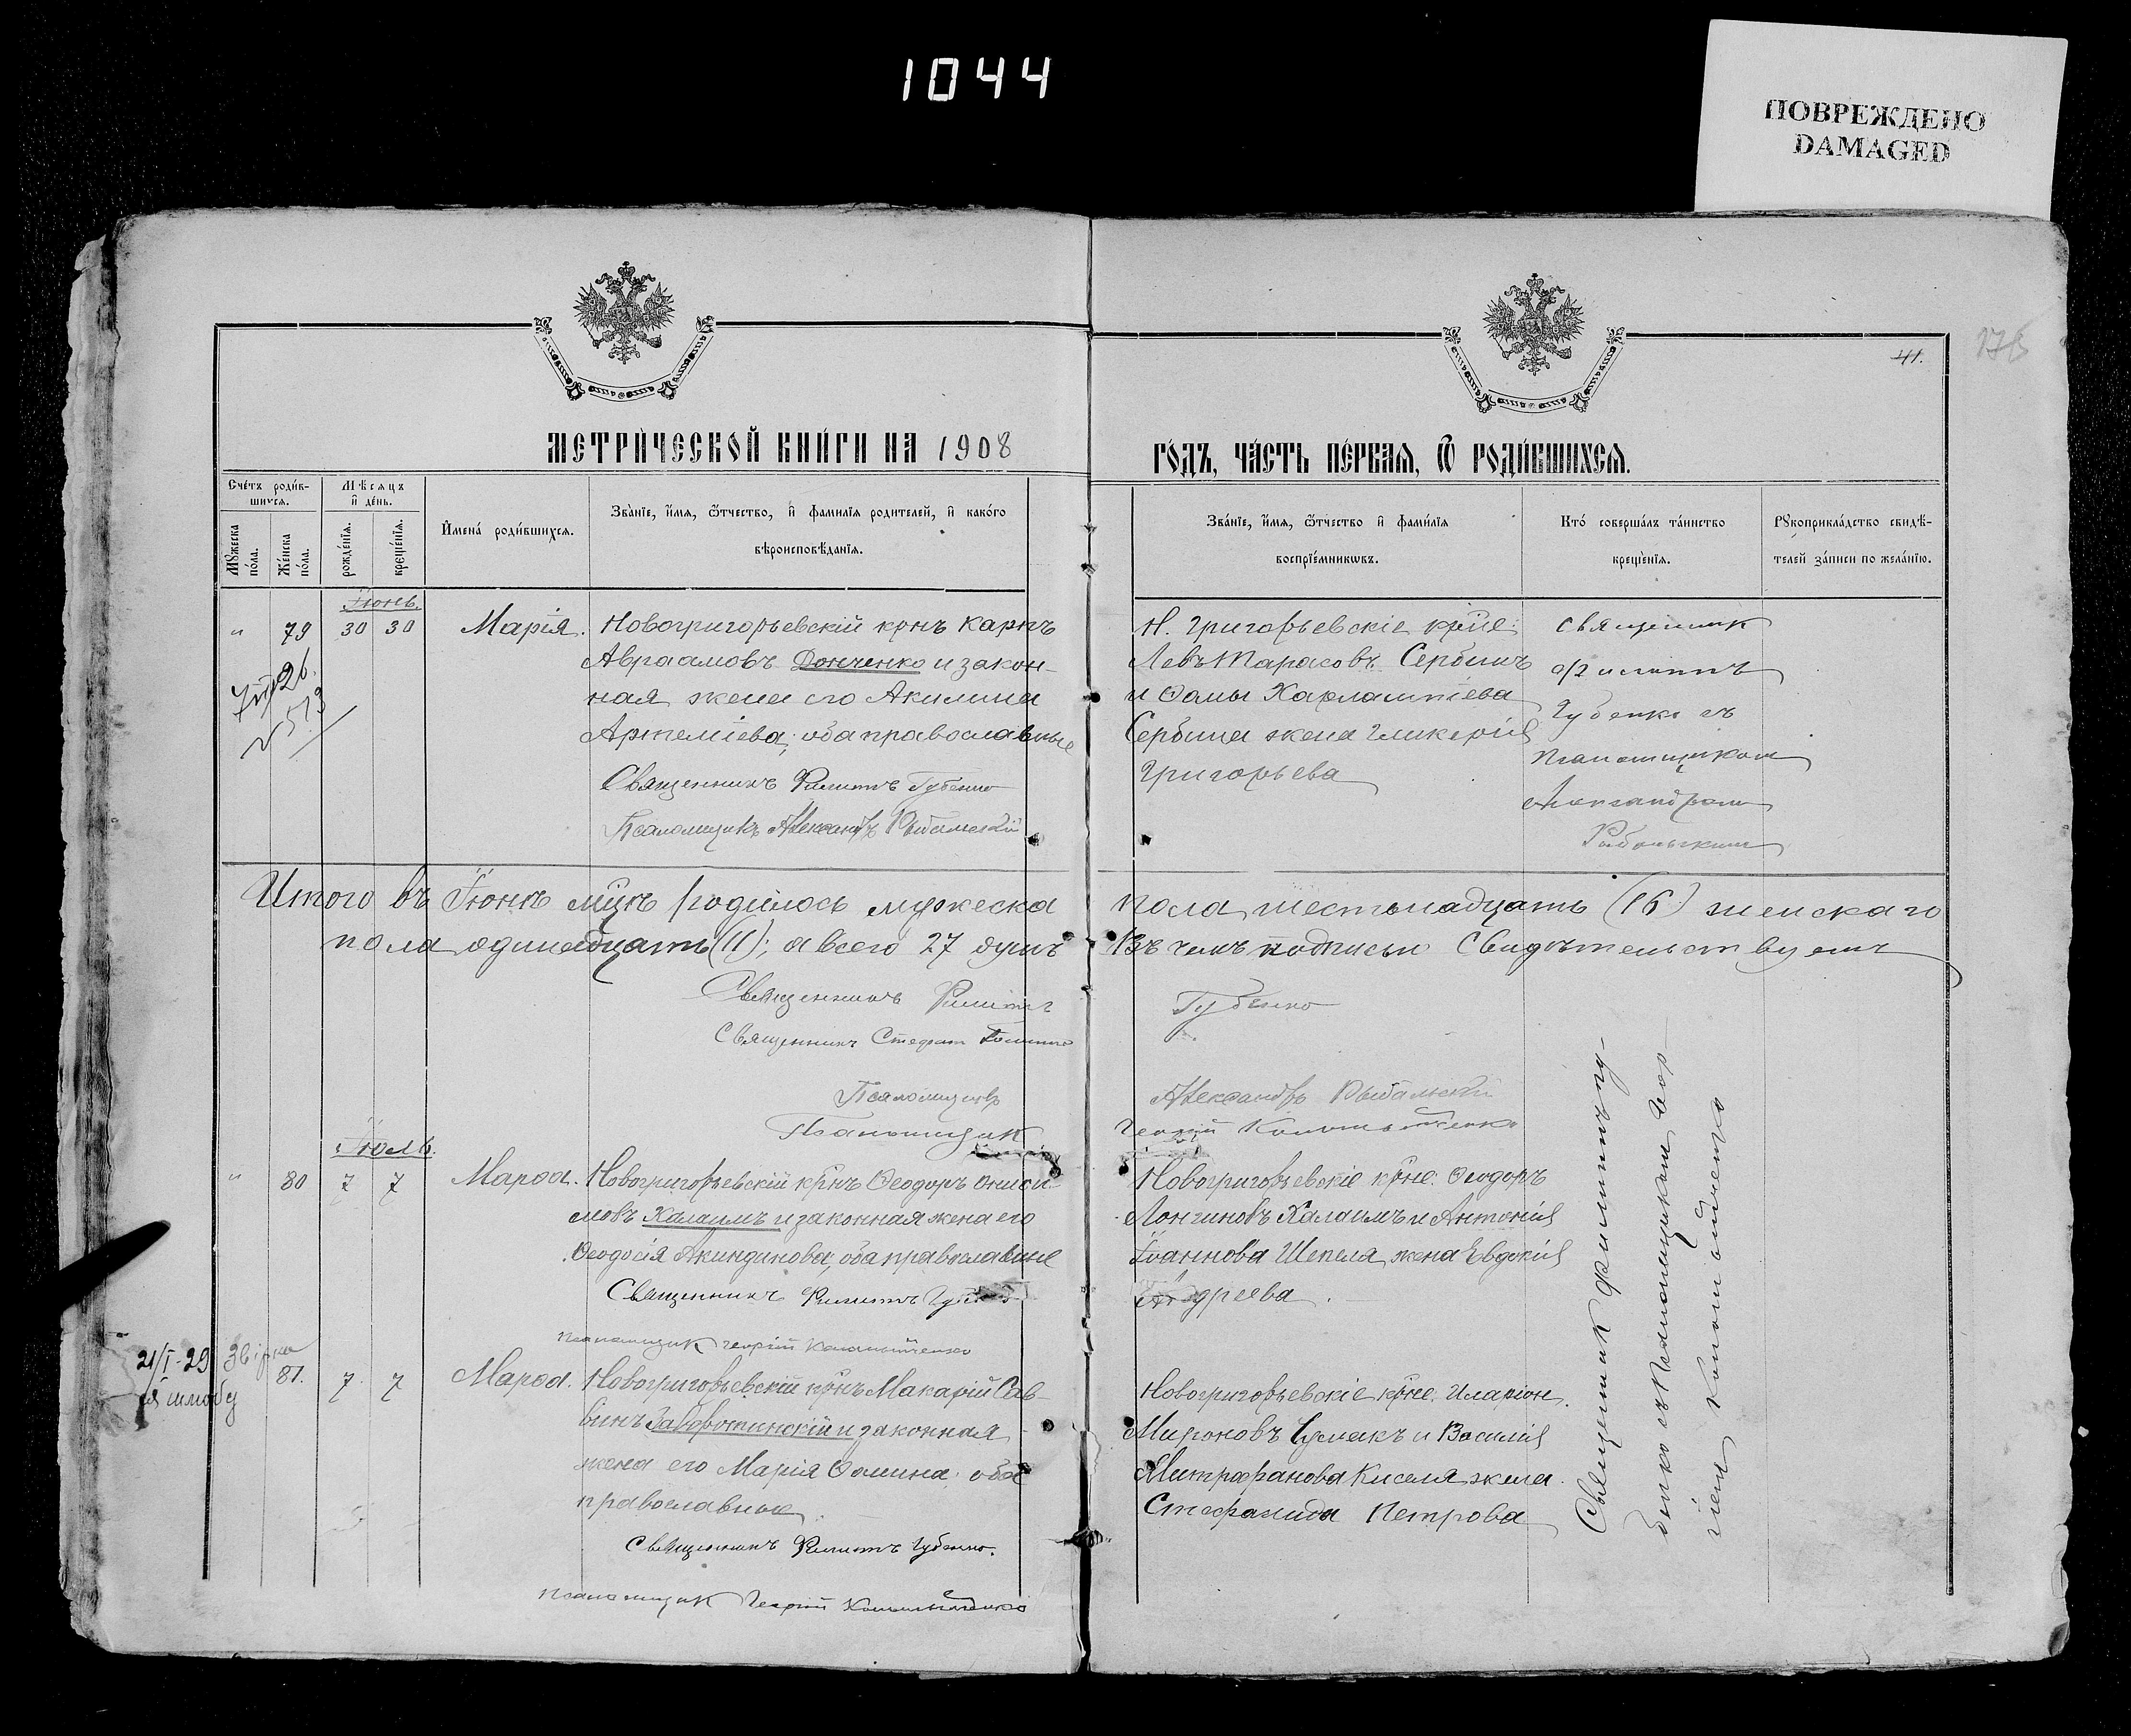 1044
ПОВРЕЖДЕНО
DAMAGED
41.
МЕТРИЧЕСКОЙ КНИГИ НА 1908
ГОДЪ, ЧАСТЬ ПЕРВАЯ, Ѿ РОДИВШИХСЯ.
Счетъ родив-
шихся.
Мѣсяцъ
и день.
Мужеска
пола.
Женска
пола.
рожденія.
крещенія.
Имена родившихся.
Званіе, имя, ѿчество, и фамилія родителей, и какого
вѣроисповѣданія.
Званіе, имя, ѿчество и фамилія
воспріемниковъ.
Кто совершалъ таинство
крещенія.
Рукоприкладство свидѣ-
телей записи по желанію.
Іюнь.
" 79 30 30 Марія. Новогригорьевскій крнъ Карпъ
Авраамовъ Донченко и закон-
ная жена его Акилина
Артеміева; оба православные
Священникъ Филиппъ Губенко
Псаломщикъ Александръ Рыбальскій
Н. Григорьевскіе крне:
Левъ Тарасовъ Сербинъ
и Ѳомы Харлампіева
Сербина жена Гликерія
Григорьева
Священник
Филиппъ
Губенко съ
псаломщиком
Александром
Рыбальским
Итого въ Іюнѣ мцѣ родилось мужеска
пола шестьнадцать (16) женскаго
пола одинадцать (11); а всего 27 душъ
Въ чемъ подписью свидѣтельствуемъ
Священникъ Филиппъ
Губенко
Священникъ Стефан
Псаломщикъ
Александръ Рыбальскій
Псаломщик
Георгій
Іюль.
" 80 7 7 Марѳа. Новогригорьевскій крнъ Ѳеодоръ Ониси-
мовъ Калаимъ и законная жена его
Ѳеодосія Акиндинова, оба православные
Священникъ Филиппъ Губенко
псаломщик Георгій
Новогригорьевскіе крне: Ѳеодоръ
Лонгиновъ Калаимъ и Антонія
Іоаннова Шепеля жена Евдокія
Андреева.
21/I-29
81. 7 7 Марѳа. Новогригорьевскій крнъ Макарій Сав-
винъ Заворотинскій и законная
жена его Марія Ѳомина; оба
православные
Священникъ Филиппъ Губенко.
псаломщик Георгій
Новогригорьевскіе крне: Иларіон
Мироновъ Чумакъ и Василія
Митрофанова Киселя жена
Стефанида Петрова
Священник Филиппъ Гу-
бенко съ Псаломщиком Геор-
гіем